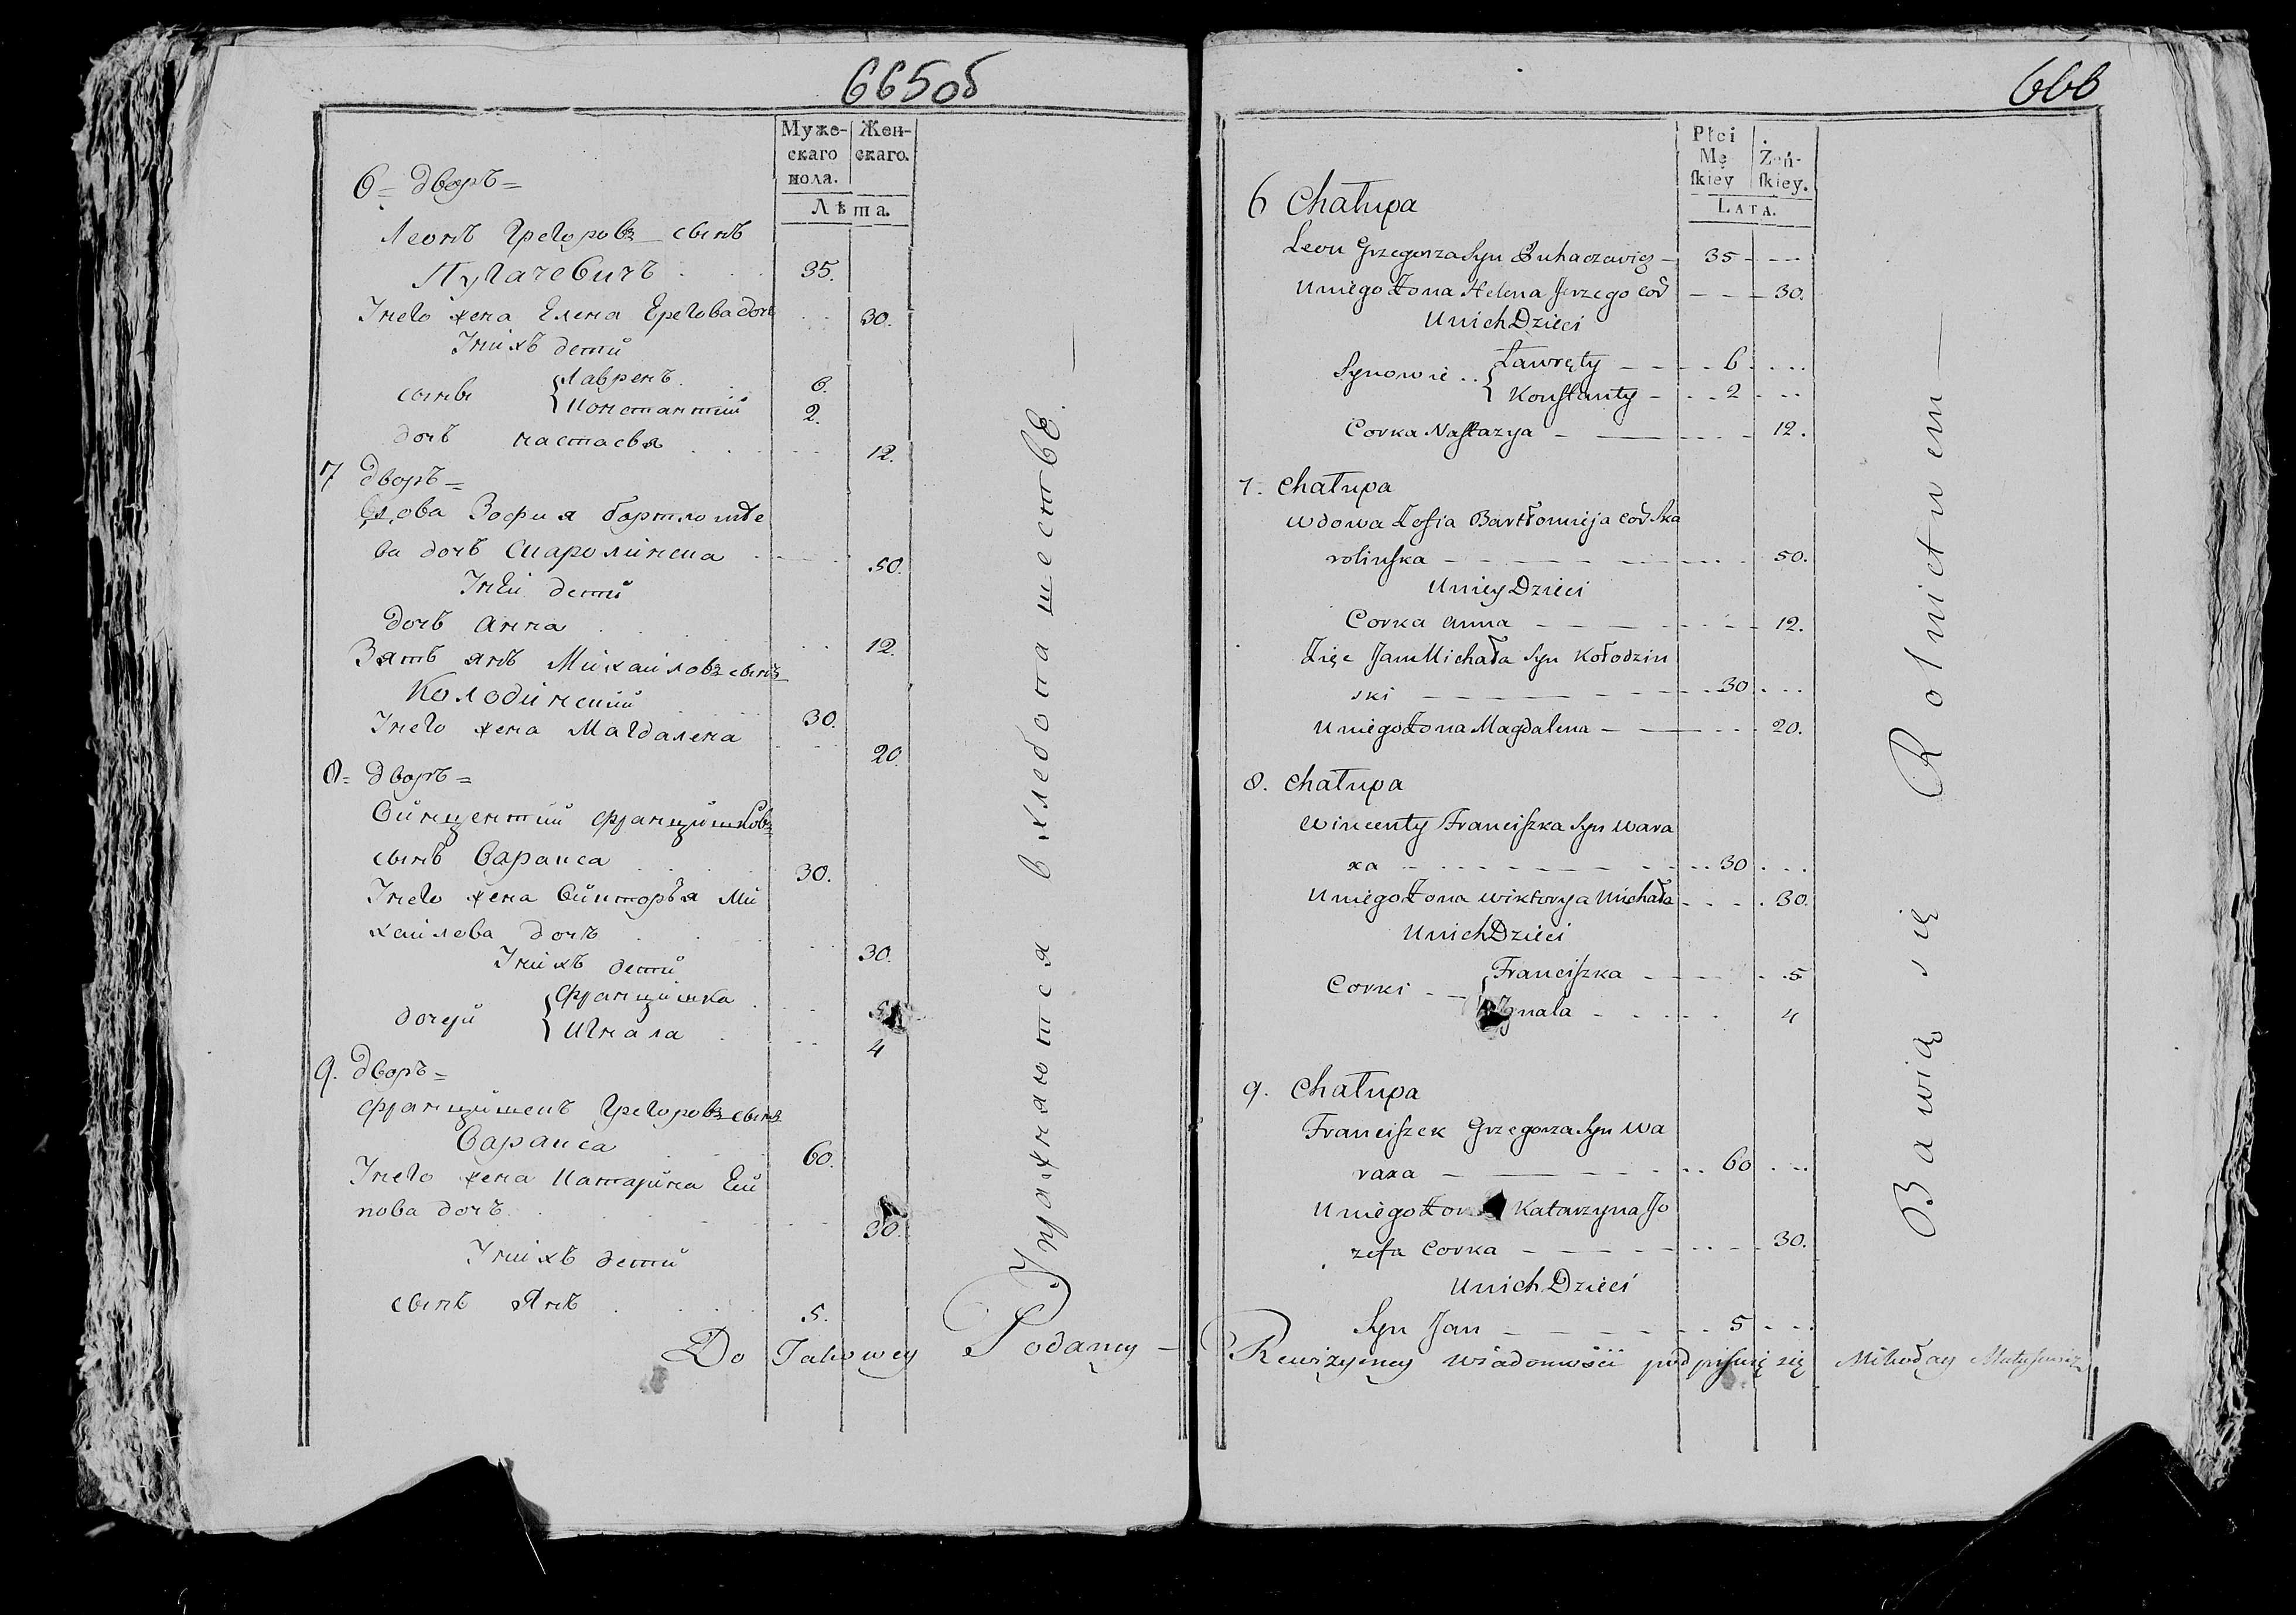 665об
Муже-
скаго
пола.
Жен-
скаго.
Лѣта.
6 = дворъ =
Леонъ Грегоровъ сынъ
Пугачевичъ . . . 35.
У него жена Елена Ерегова дочь . . 30.
У нихъ дети
сынве { Лаврентъ . . 6.
{ Константий 2.
дочь настасья . . . 12.
7 дворъ =
Вдова Зофия бартломѣе
ва дочь Скаролинска . . . 50.
У ней дети
дочь анна . . . 12.
Зять янъ Михайловъ сынъ
Колодинский . . . 30.
У него жена Магдалена . . 20.
8 = дворъ =
Винцентий францишковъ
сынъ Варакса . . . 30.
У него жена Викторъя Ми
хайлова дочъ . . . 30.
У нихъ дети
дочери { францишка . . . 5
{ Игнала . . . 4
9. дворъ =
францишекъ Грегоровъ сынъ
Варакса . . . 60.
У него жена Катарина Еси
пова дочъ . . . 30.
У нихъ дети
сынъ Янъ . . . 5.
Упражняются в хлебопашестве.
666
Płci
Mę
ſkiey
Żeń-
ſkiey.
LATA.
6 Chałupa
Leon Grzegorza Syn Puhaczewicz – 35 - - - -
U niego Żona Helena Jerzego Cor – – – 30.
U nich Dzieci
Synowie . . { Ławręty – – - . 6 . . . .
{ Konſtanty – . . 2 . - - -
Corka Naſtazya – — - - . - 12.
7. Chałupa
Wdowa Zofia Bartłomieja Cor Ska
rolinſka – – – – – - - . . 50.
U niey Dzieci
Corka Anna – – – – - - - - 12.
Zięc Jan Michała Syn Kołodzin
ski – – – – – – – . . 30 . . . .
U niego Żona Magdalena – — . . . 20.
8. Chałupa
Wincenty Franciſzka Syn Wara
xa – - - - - - – . . 30 . . .
U niego Żona Wiktorya Michała - - . . 30.
U nich Dzieci
Corki - – { Franciſzka - - - - . . 5
{ Ignala - - . - . 4
9. Chałupa
Franciſzek Grzegorza Syn Wa
raxa – — - - - - . . 60 . - - -
U niego Żona Katarzyna Jo
zefa Corka – – – – - - . - 30.
U nich Dzieci
Syn Jan – – – – – . . 5 - - - .
Bawią się Rolnictwem
Do Takowey Podaney – Rewizyiney Wiadomości podpisuię się Mikołay Matuſewicz